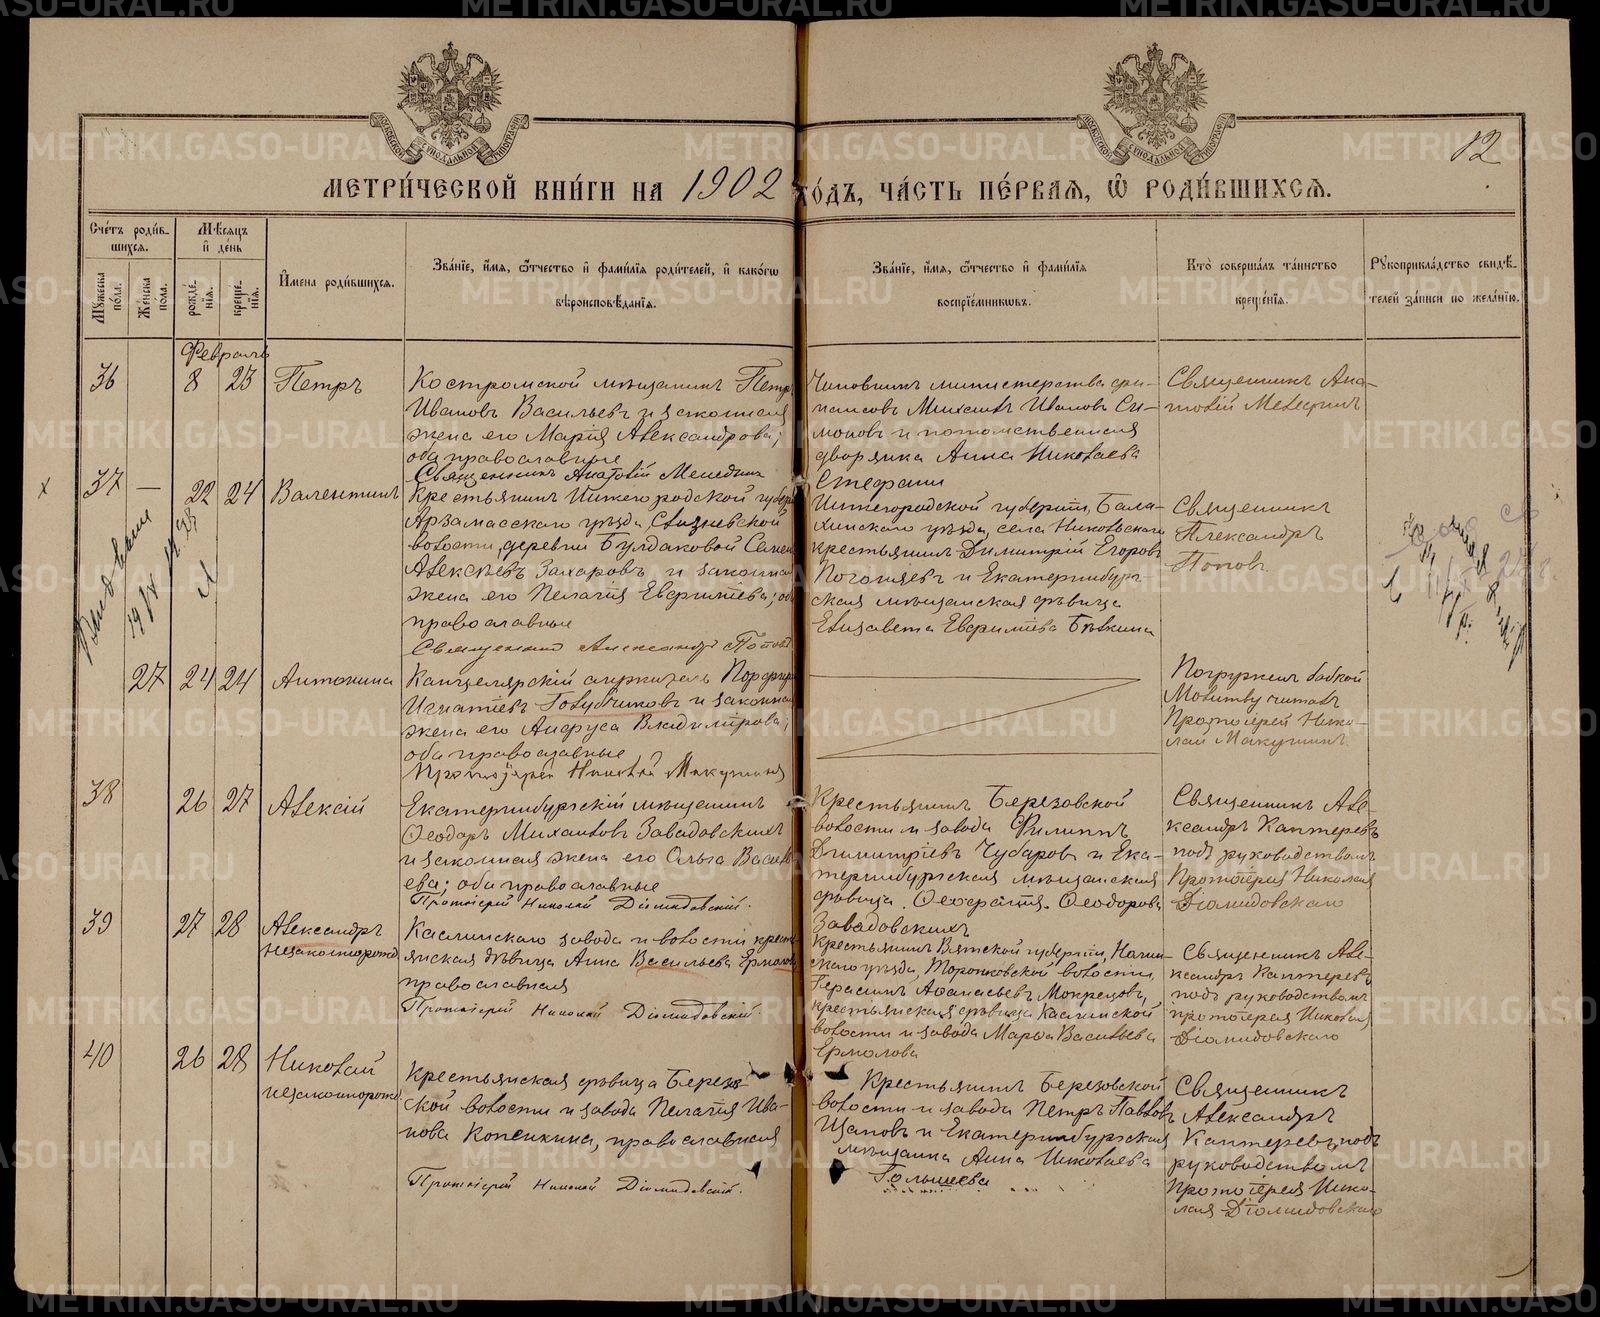 12
МЕТРИ́ЧЕСКОЙ КНИ́ГИ НА 1902 ГО́ДЪ, ЧА́СТЬ ПЕ́РВАЯ, Ѡ РОДИ́ВШИХСЯ.
Сче́тъ роди́в-
шихся.
Му́жеска по́ла.
Же́нска по́ла.
Мѣ́сяцъ
и де́нь
рожде́-
нїя.
креще́-
нїя.
И́мена роди́вшихся.
Зва́нїе, и́мя, ѻ́тчество и фами́лїя роди́телей, и како́гѡ
вѣроисповѣ́данїя.
Зва́нїе, и́мя, ѻ́тчество и фами́лїя
воспрїе́мниковъ.
Кто̀ соверша́лъ та́инство
креще́нїя.
Рукоприкла́дство свидѣ́-
телей за́писи по жела́нїю.
Февраль
36 8 23 Петръ
Костромской мѣщанинъ Петръ
Ивановъ Васильевъ и законная
жена его Марія Александрова;
оба православные
Священникъ Анатолій Меледин
Чиновникъ министерства фи-
нансовъ Михаилъ Ивановъ Си-
моновъ и потомственная
дворянка Анна Николаева
Стефани
Священникъ Ана-
толій Мелединъ
х 37 — 22 24 Валентинъ
Крестьянинъ Нижегородской губерніи
Арзамасского уѣзда,
волости, деревни Булдаковой Семенъ
Алексѣевъ Захаровъ и законная
жена его Пелагія Евфиміева; оба
православные
Священникъ Александръ Поповъ
Нижегородской губерніи, Бала-
хинскаго уѣзда, села Никольскаго
крестьянинъ Димитрій Егоровъ
и Екатеринбург-
ская мѣщанская дѣвица
Елизавета Евфиміева Бѣлкина
Священникъ
Александръ
Поповъ
27 24 24 Антонина
Канцелярскій служитель Порфирій
Игнатіевъ Голубчиковъ и законная
жена его Анфуса Владимірова;
оба православные
Протоіерей Николай Макушинъ
Погружена бабкой
Молитву читалъ
Протоіерей Нико-
лай Макушинъ
38 26 27 Алексій
Екатеринбургскій мѣщанинъ
Ѳеодоръ Михаиловъ Завадовскихъ
и законная жена его Ольга Василь-
ева; оба православные
Протоіерей Николай Діомидовскій.
Крестьянинъ Березовской
волости и завода Филиппъ
Димитріевъ Чубаровъ и Ека-
теринбургская мѣщанская
дѣвица Ѳеодорова
Завадовскихъ
Священникъ Але-
ксандръ Каптеревъ
подъ руководствомъ
Протоіерея Николая
Діомидовскаго
39 27 28 Александръ
незаконнорожд.
Каслинскаго завода и волости кресть-
янская дѣвица Анна Васильева Ермолова
православная
Протоіерей Николай Діомидовскій.
Крестьянинъ Вятской губерніи, Нолин-
скаго уѣзда, волости,
Герасимъ Аѳанасьевъ Мокрецовъ,
крестьянская дѣвица Каслинской
волости и завода Марѳа Васильева
Ермолова
Священникъ Але-
ксандръ Каптеревъ
подъ руководствомъ
протоіерея Николая
Діомидовскаго
40 26 28 Николай
незаконнорожд.
Крестьянская дѣвица Березов-
ской волости и завода Пелагія Ива-
нова Копенкина, православная
Протоіерей Николай Діомидовскій.
Крестьянинъ Березовской
волости и завода Петръ Павловъ
Щаповъ и Екатеринбургская
мѣщанка Анна Николаева
Голышева
Священникъ
Александръ
Каптеревъ, подъ
руководствомъ
Протоіерея Нико-
лая Діомидовскаго
METRIKI.GASO-URAL.RU